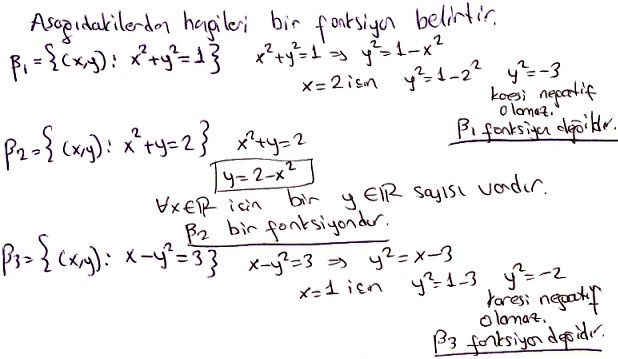 Aşağıdakilerden hangileri bir fonksiyon belirtir.
β₁ = {(x,y): x²+y²=1} x²+y²=1 ⇒ y²=1-x²
x=2 için y²=1-2² y²=-3
karesi negatif
olamaz.
β₁ fonksiyon değildir.
β₂ = {(x,y): x²+y=2} x²+y=2
y=2-x²
∀x∈ℝ için bir y∈ℝ sayısı vardır.
β₂ bir fonksiyondur.
β₃ = {(x,y): x-y²=3} x-y²=3 ⇒ y²=x-3
x=1 için y²=1-3 y²=-2
karesi negatif
olamaz.
β₃ fonksiyon değildir.